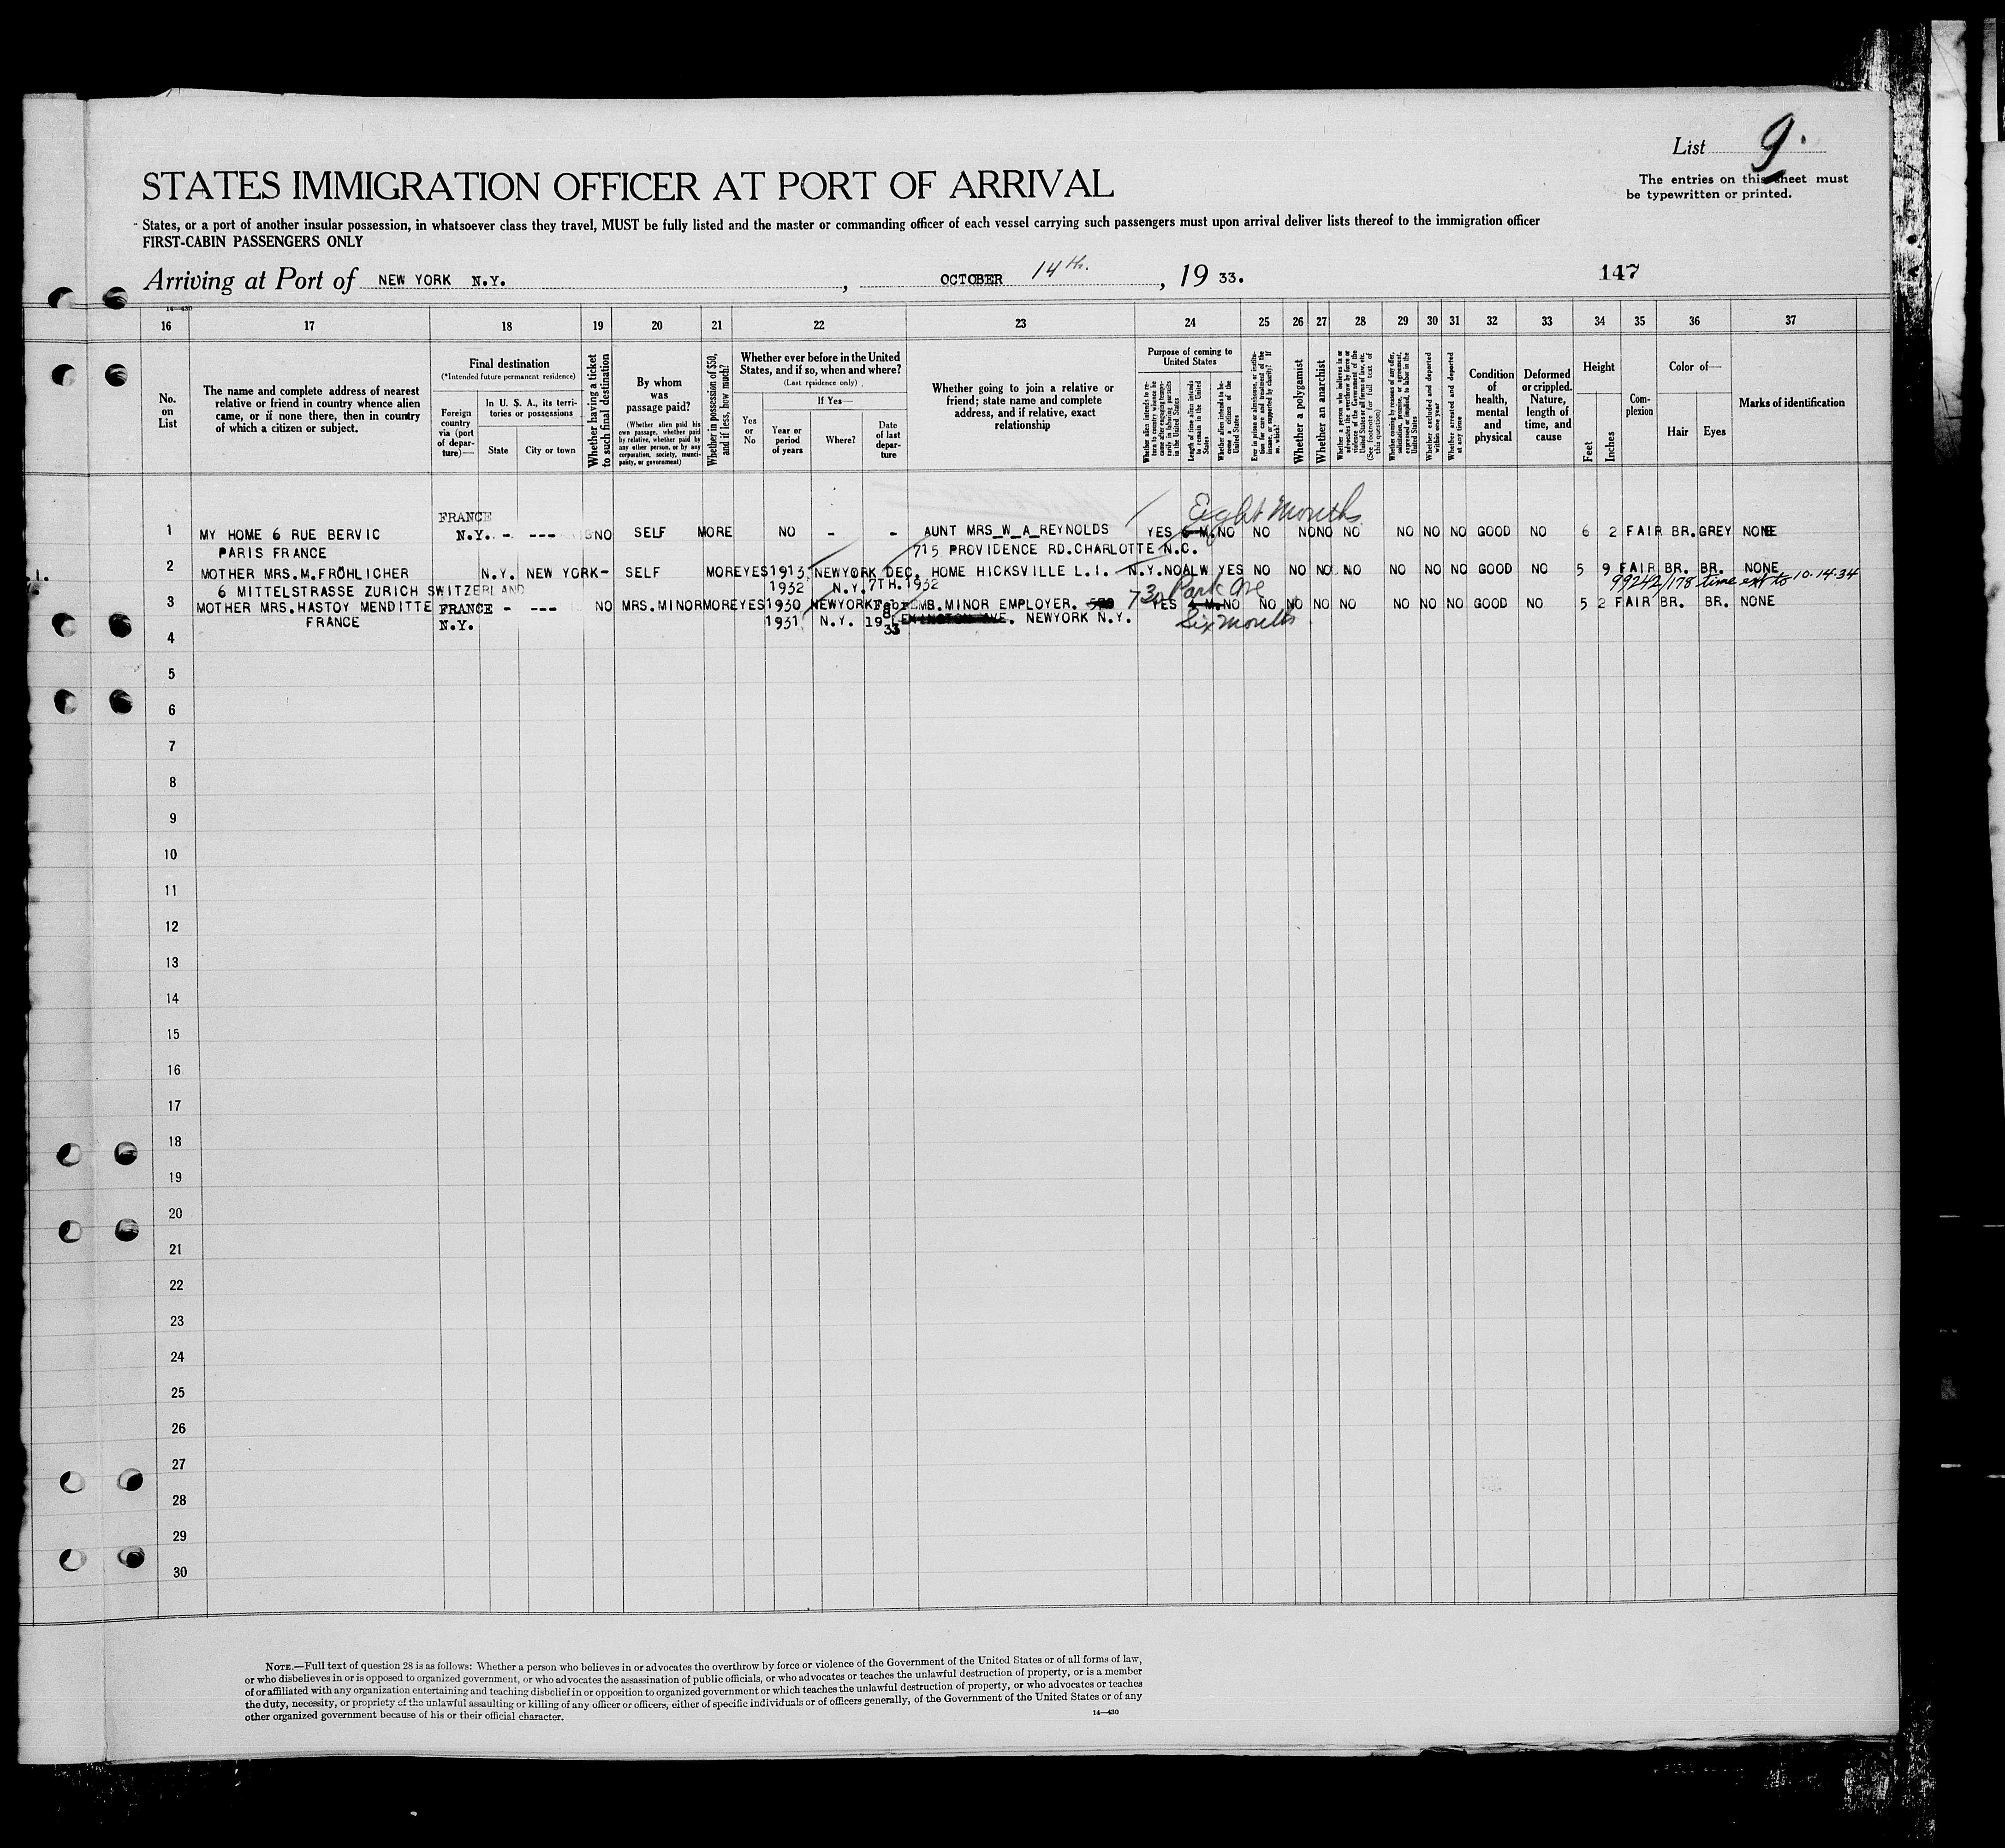 List 9.
The entries on this sheet must
be typewritten or printed.
STATES IMMIGRATION OFFICER AT PORT OF ARRIVAL
States, or a port of another insular possession, in whatsoever class they travel, MUST be fully listed and the master or commanding officer of each vessel carrying such passengers must upon arrival deliver lists thereof to the immigration officer
FIRST-CABIN PASSENGERS ONLY
Arriving at Port of NEW YORK N.Y. , OCTOBER 14th. , 19 33. 147
14—430
16 17 18 19 20 21 22 23 24 25 26 27 28 29 30 31 32 33 34 35 36 37
No. on List
The name and complete address of nearest
relative or friend in country whence alien
came, or if none there, then in country
of which a citizen or subject.
Final destination
(*Intended future permanent residence)
Foreign country via (port of departure)—
In U. S. A., its territories or possessions
State
City or town
Whether having a ticket to such final destination
By whom was passage paid?
(Whether alien paid his own passage, whether paid by relative, whether paid by any other person, or by any corporation, society, municipality, or government)
Whether in possession of $50, and if less, how much?
Whether ever before in the United
States, and if so, when and where?
(Last residence only)
Yes or No
If Yes—
Year or period of years
Where?
Date of last departure
Whether going to join a relative or
friend; state name and complete
address, and if relative, exact
relationship
Purpose of coming to United States
Whether alien intends to return to country whence he came after engaging temporarily in laboring pursuits in the United States
Length of time alien intends to remain in the United States
Whether alien intends to become a citizen of the United States
Ever in prison or almshouse, or institution for care and treatment of the insane, or supported by charity? If so, which?
Whether a polygamist
Whether an anarchist
Whether a person who believes in or advocates the overthrow by force or violence of the Government of the United States or all forms of law, etc. (See footnote for full text of this question)
Whether coming by reason of any offer, solicitation, promise, or agreement, expressed or implied, to labor in the United States
Whether excluded and deported within one year
Whether arrested and deported at any time
Condition of health, mental and physical
Deformed or crippled. Nature, length of time, and cause
Height
Feet
Inches
Complexion
Color of—
Hair
Eyes
Marks of identification
FRANCE Eight Months
1 MY HOME 6 RUE BERVIC N.Y. - --- NO SELF MORE NO - - AUNT MRS_W_A_REYNOLDS YES 6 M. NO NO NO NO NO NO NO NO GOOD NO 6 2 FAIR BR. GREY NONE
PARIS FRANCE 715 PROVIDENCE RD. CHARLOTTE N.C.
2 MOTHER MRS.M.FRÖHLICHER N.Y. NEW YORK- SELF MORE YES 1913 NEWYORK DEC. HOME HICKSVILLE L.I. N.Y. NO ALW YES NO NO NO NO NO NO NO GOOD NO 5 9 FAIR BR. BR. NONE
6 MITTELSTRASSE ZURICH SWITZERLAND 1932 N.Y. 7TH.1932 730 Park Ave 99242/178 time ext to 10-14-34
3 MOTHER MRS.HASTOY MENDITTE FRANCE - --- NO MRS.MINOR MORE YES 1930 NEWYORK MB.MINOR EMPLOYER. YES M. NO NO NO NO NO NO NO NO GOOD NO 5 2 FAIR BR. BR. NONE
FRANCE N.Y. 1931 N.Y. 19 33 LEXINGTON AVE. NEWYORK N.Y. Six months
4
5
6
7
8
9
10
11
12
13
14
15
16
17
18
19
20
21
22
23
24
25
26
27
28
29
30
NOTE.—Full text of question 28 is as follows: Whether a person who believes in or advocates the overthrow by force or violence of the Government of the United States or of all forms of law,
or who disbelieves in or is opposed to organized government, or who advocates the assassination of public officials, or who advocates or teaches the unlawful destruction of property, or is a member
of or affiliated with any organization entertaining and teaching disbelief in or opposition to organized government or which teaches the unlawful destruction of property, or who advocates or teaches
the duty, necessity, or propriety of the unlawful assaulting or killing of any officer or officers, either of specific individuals or of officers generally, of the Government of the United States or of any
other organized government because of his or their official character.
14—430